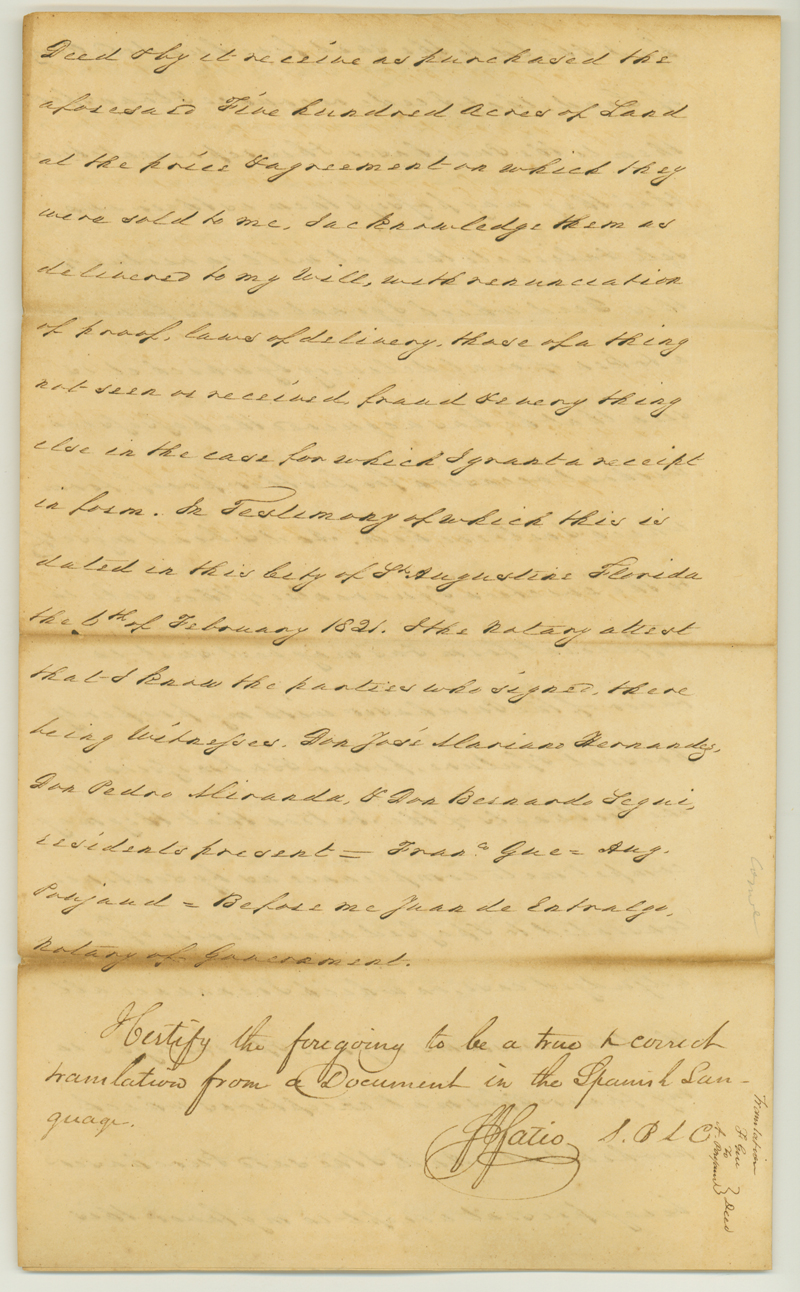 Deed & by it receive as purchased the
aforesaid Five hundred Acres of Land
at the price & agreement on which they
were sold to me, I acknowledge them as
delivered to my Will, with renunciation
of proof, laws of delivery, those of a thing
not seen or received, fraud & every thing
else in the case for which I grant a receipt
in form. In Testimony of which this is
dated in this City of St. Augustine Florida
the 6th of February 1821. I the Notary attest
that I know the parties who signed, there
being Witnesses, Don José Mariano Hernandez,
Don Pedro Miranda, & Don Bernardo Segui,
residents present = Franco. Gue = Aug.
Poujaud = Before me Juan de Entralgo,
Notary of Government.
I Certify the foregoing to be a true & correct
translation from a Document in the Spanish Lan-
guage.
FJFatio S. B L C
Translation
F. Gue
To
A. Poujaud } Deed